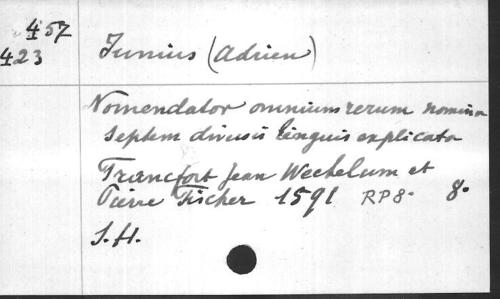 457
423
Junius (Adrien)
Nomendator omnium rerum nomina
septem diversis linguis explicata
Francfort Jean Wechelum et
Pierre Fischer 1591 RP8. 8.
S.H.